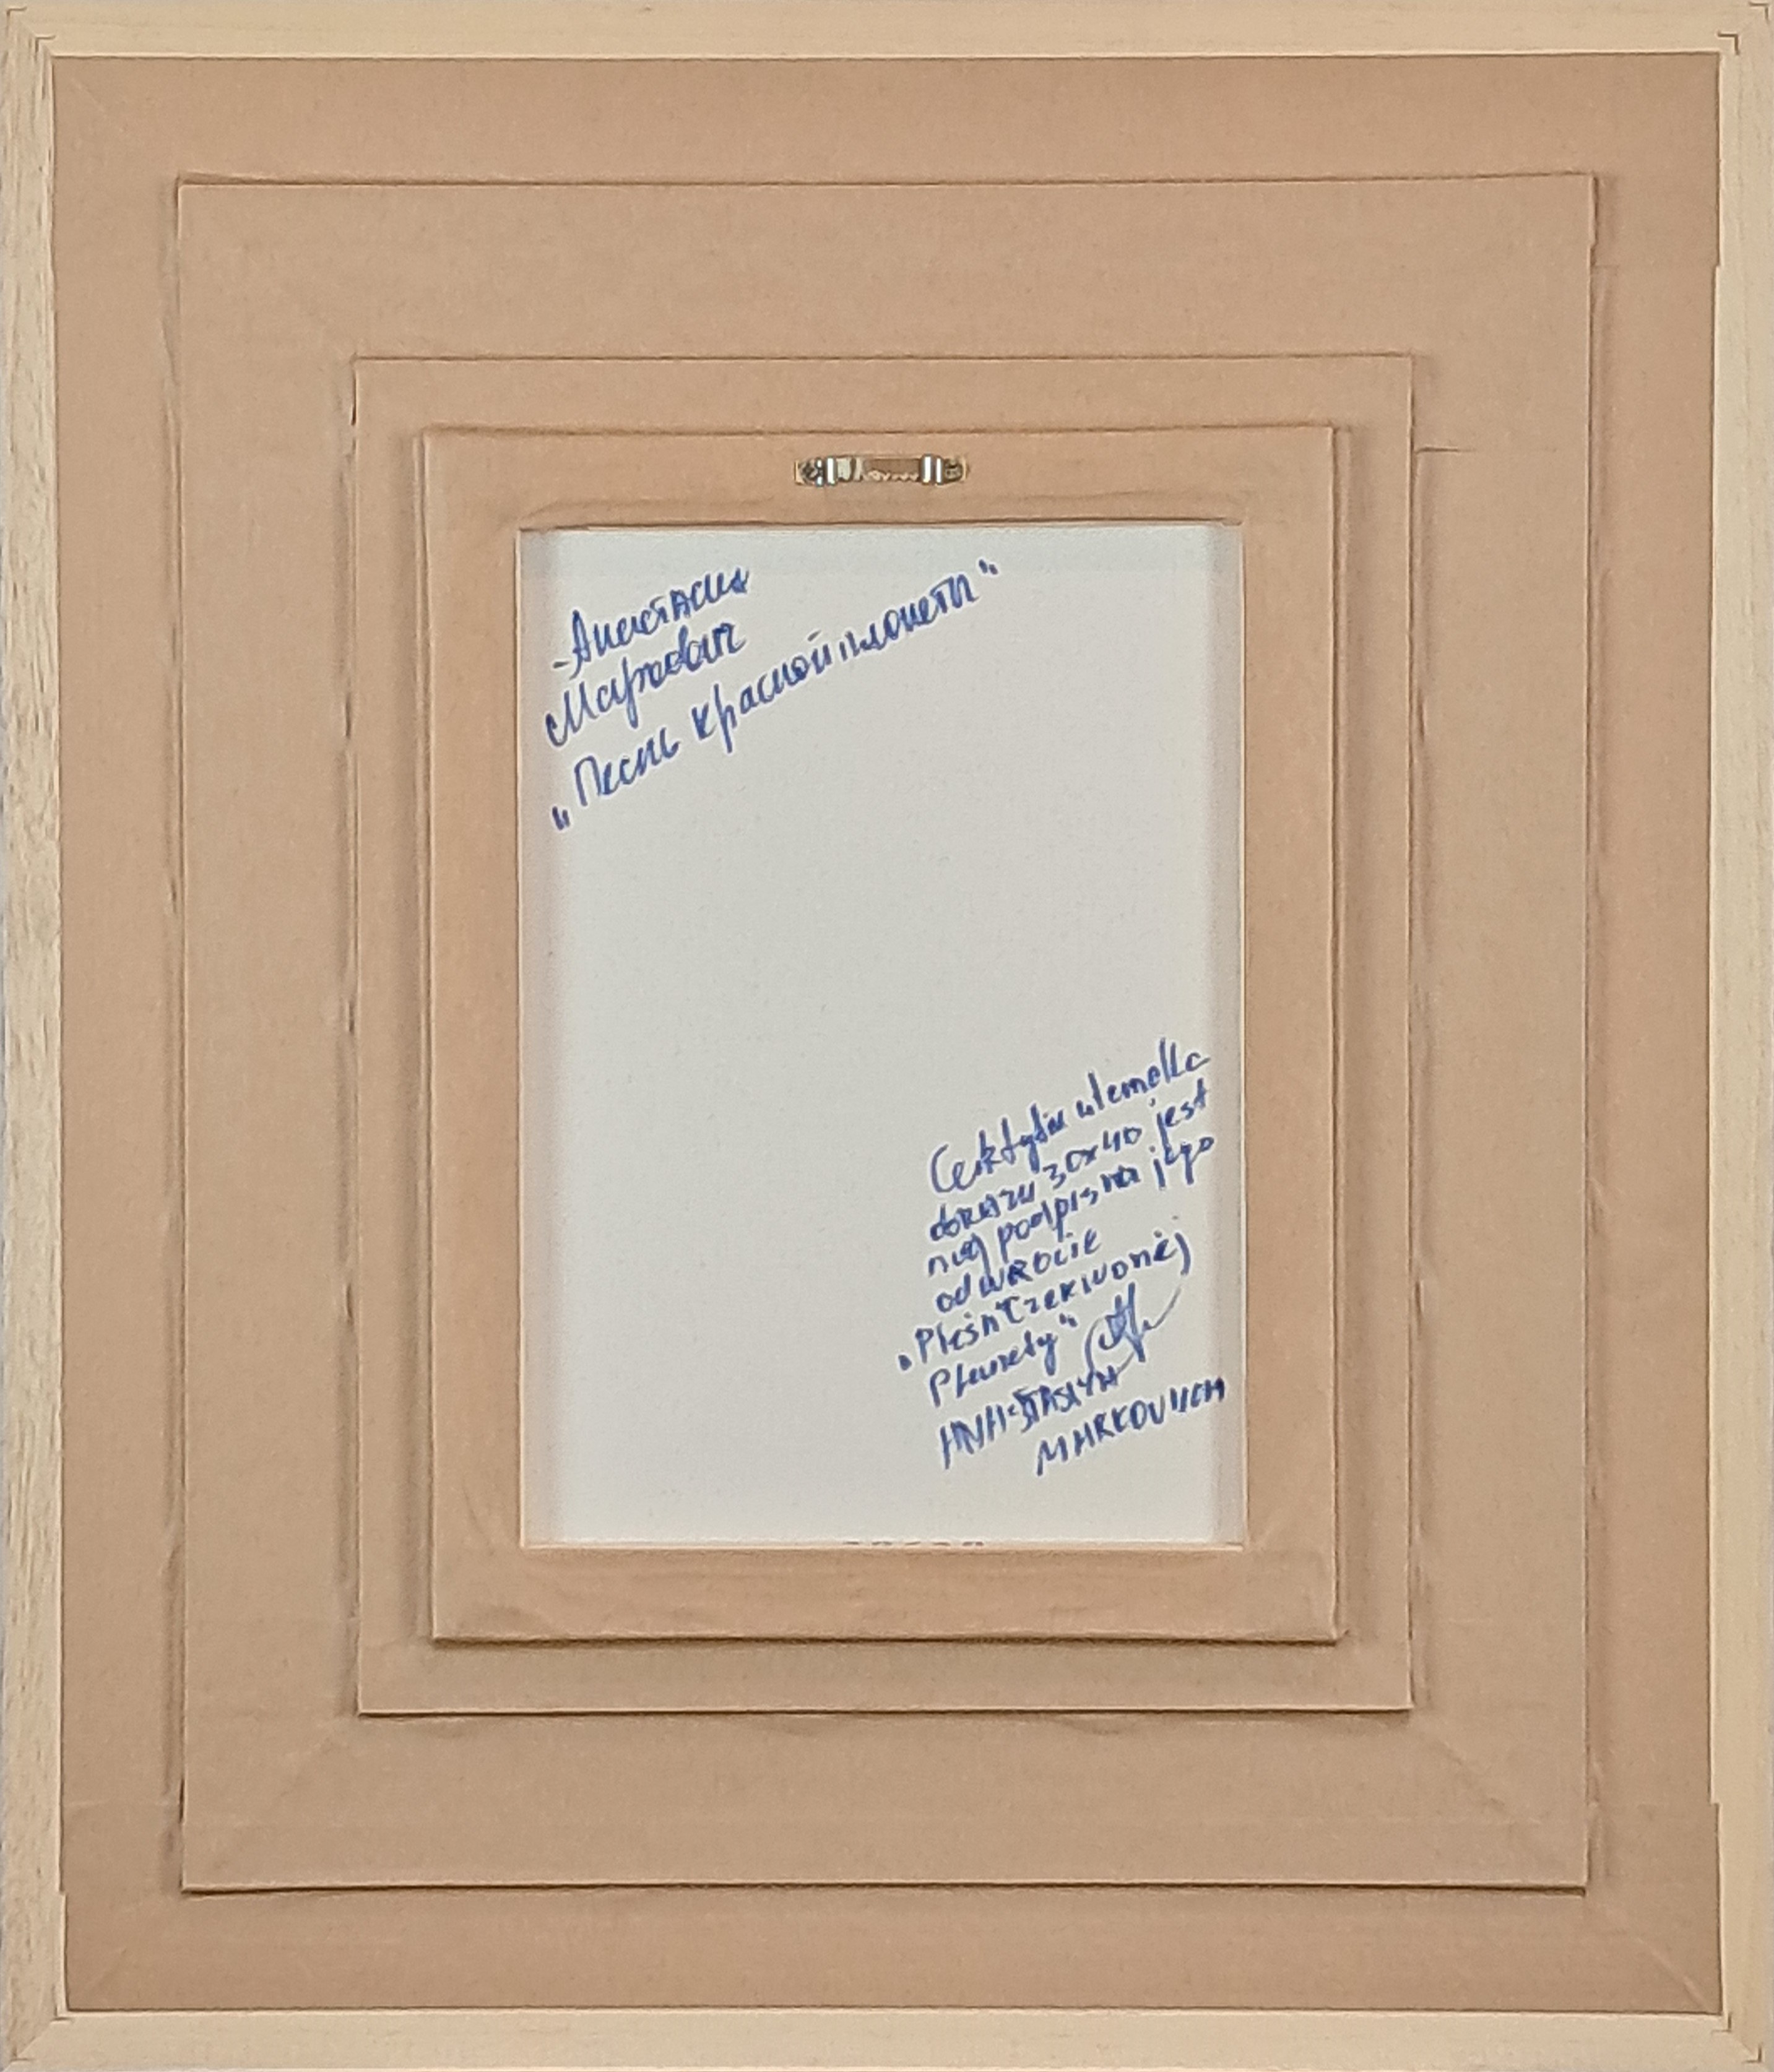 Анастасия
Маркович
„Песнь красной планеты"
Certyfikatem dla
obrazu 30x40 jest
mój podpis na jego
odwrocie
„Pieśń Czerwonej
Planety"
ANASTASIYA
MARKOVICH